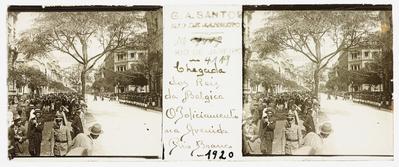 G. A. SANTOS
4119
Chegada
dos Reis
da Belgica
O Policiamento
na Avenida
Rio Branco
1920